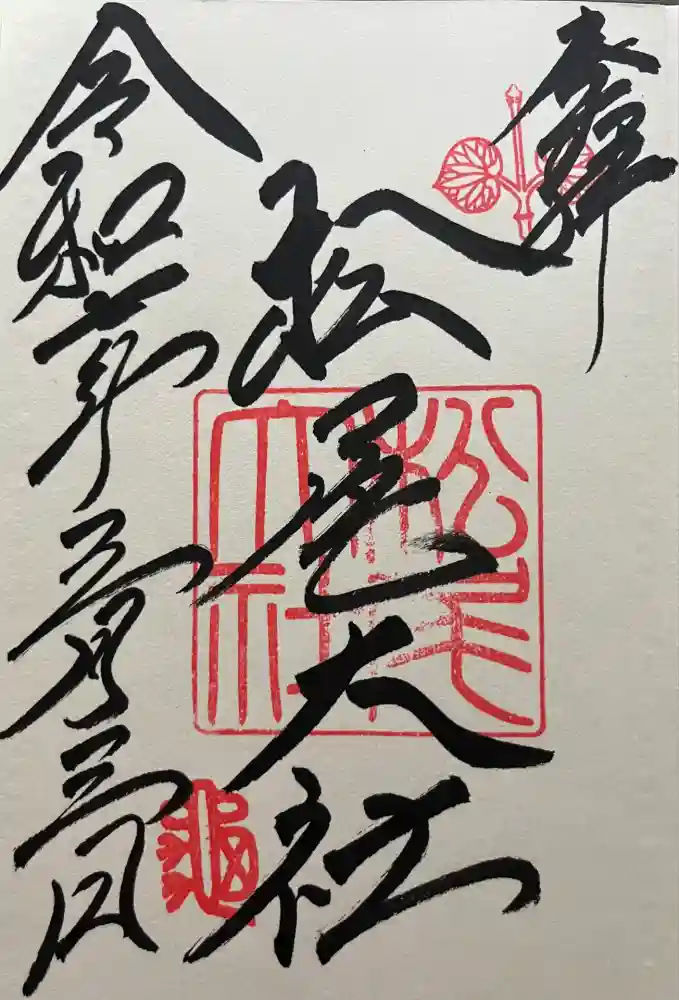 奉拝
松尾大社
令和年三月三日
松尾
大社